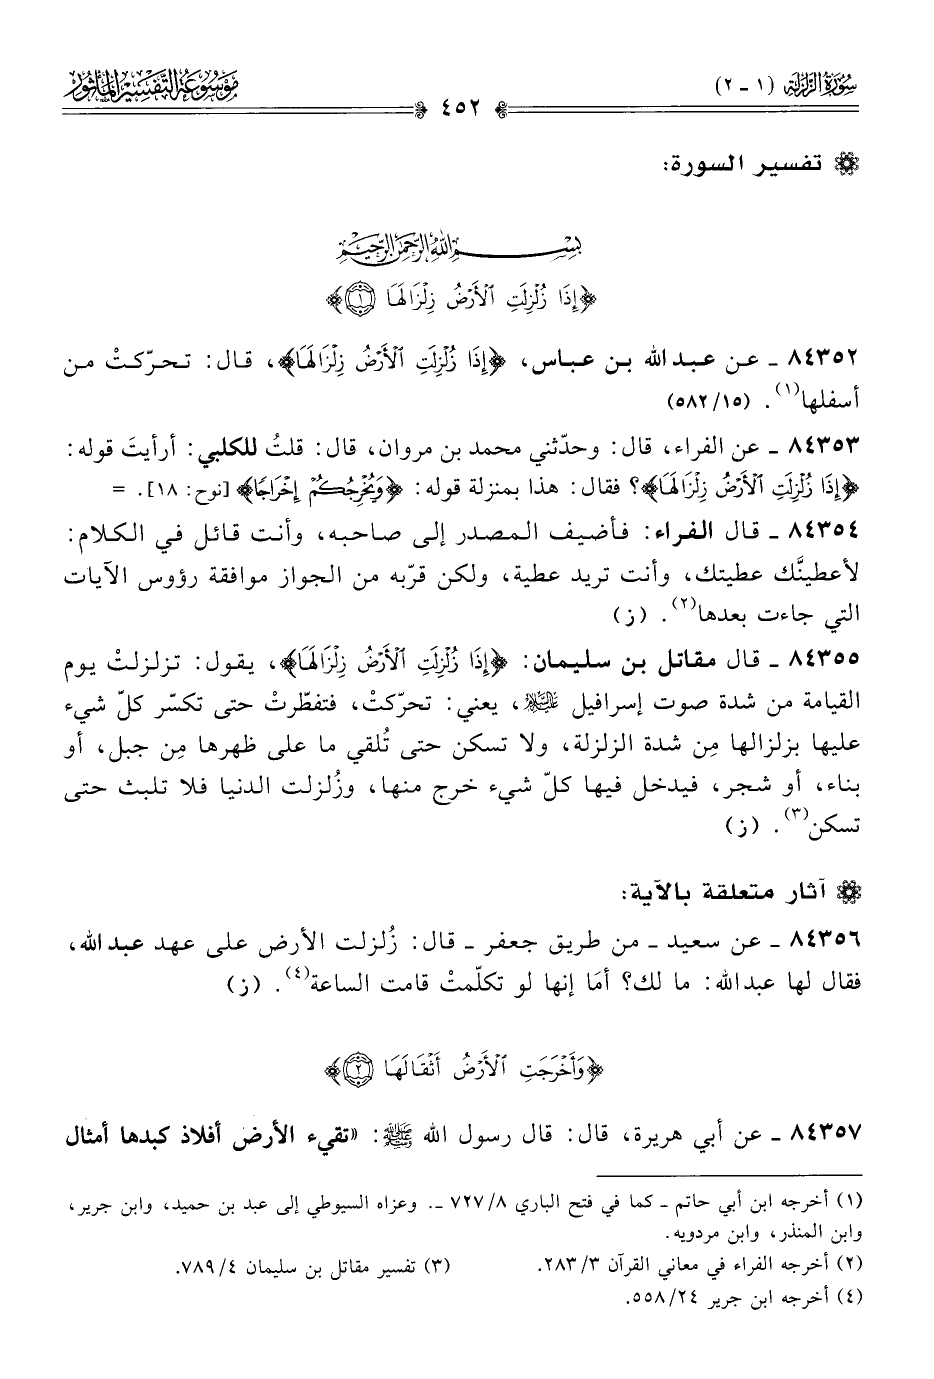 سُورَةُ الزَّلْزَلَةِ (١ - ٢)
٤٥٢
مَوْسُوعَةُ التَّفْسِيرِ المَأْثُور
تفسير السورة:
بِسْمِ اللَّهِ الرَّحْمَنِ الرَّحِيمِ
﴿إِذَا زُلْزِلَتِ ٱلْأَرْضُ زِلْزَالَهَا ١﴾
٨٤٣٥٢ ـ عن عبد الله بن عباس، ﴿إِذَا زُلْزِلَتِ ٱلْأَرْضُ زِلْزَالَهَا﴾، قال: تحرّكتْ من
أسفلها(١). (٥٨٢/١٥)
٨٤٣٥٣ ـ عن الفراء، قال: وحدّثني محمد بن مروان، قال: قلتُ للكلبي: أرأيتَ قوله:
﴿إِذَا زُلْزِلَتِ ٱلْأَرْضُ زِلْزَالَهَا﴾؟ فقال: هذا بمنزلة قوله: ﴿وَيُخْرِجُكُمْ إِخْرَاجًا﴾ [نوح: ١٨]. =
٨٤٣٥٤ ـ قال الفراء: فأضيف المصدر إلى صاحبه، وأنت قائل في الكلام:
لأعطينَّك عطيتك، وأنت تريد عطية، ولكن قرّبه من الجواز موافقة رؤوس الآيات
التي جاءت بعدها(٢). (ز)
٨٤٣٥٥ ـ قال مقاتل بن سليمان: ﴿إِذَا زُلْزِلَتِ ٱلْأَرْضُ زِلْزَالَهَا﴾، يقول: تزلزلتْ يوم
القيامة من شدة صوت إسرافيل عليه السلام، يعني: تحرّكتْ، فتفطّرتْ حتى تكسّر كلّ شيء
عليها بزلزالها مِن شدة الزلزلة، ولا تسكن حتى تُلقي ما على ظهرها مِن جبل، أو
بناء، أو شجر، فيدخل فيها كلّ شيء خرج منها، وزُلزلت الدنيا فلا تلبث حتى
تسكن(٣). (ز)
آثار متعلقة بالآية:
٨٤٣٥٦ ـ عن سعيد ـ من طريق جعفر ـ قال: زُلزلت الأرض على عهد عبد الله،
فقال لها عبد الله: ما لك؟ أمَا إنها لو تكلّمتْ قامت الساعة(٤). (ز)
﴿وَأَخْرَجَتِ ٱلْأَرْضُ أَثْقَالَهَا ٢﴾
٨٤٣٥٧ ـ عن أبي هريرة، قال: قال رسول الله ﷺ: «تقيء الأرض أفلاذ كبدها أمثال
(١) أخرجه ابن أبي حاتم ـ كما في فتح الباري ٧٢٧/٨ ـ. وعزاه السيوطي إلى عبد بن حميد، وابن جرير،
وابن المنذر، وابن مردويه.
(٢) أخرجه الفراء في معاني القرآن ٢٨٣/٣. (٣) تفسير مقاتل بن سليمان ٧٨٩/٤.
(٤) أخرجه ابن جرير ٥٥٨/٢٤.